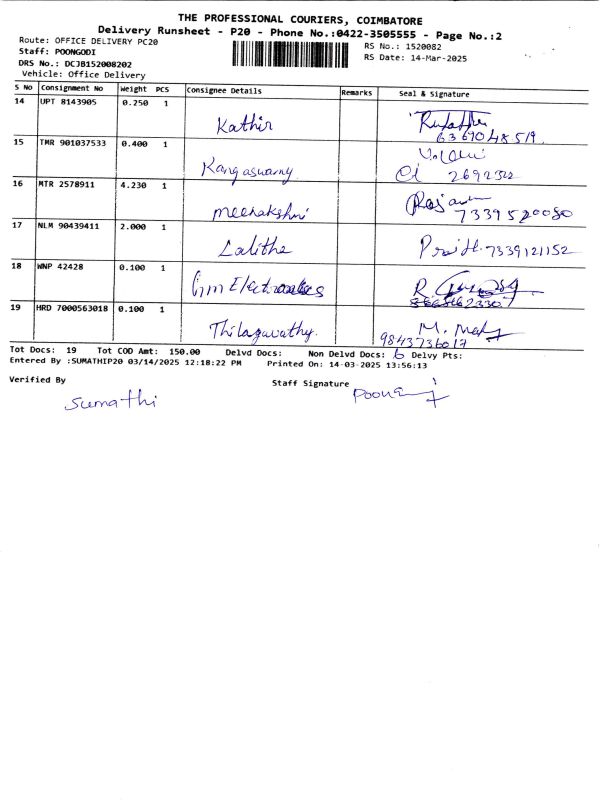 THE PROFESSIONAL COURIERS, COIMBATORE
Delivery Runsheet - P20 - Phone No.:0422-3505555 - Page No.:2
Route: OFFICE DELIVERY PC20
RS No.: 1520082
Staff: POONGODI
RS Date: 14-Mar-2025
DRS No.: DCJB152008202
Vehicle: Office Delivery
S No Consignment No Weight PCS Consignee Details Remarks Seal & Signature
14 UPT 8143905 0.250 1
Kathir
6369048519
15 TMR 901037533 0.400 1
Kangaswamy
16 MTR 2578911 4.230 1
Meenakshi
7339520080
17 NLM 90439411 2.000 1
Lalitha 7339121152
18 WNP 42428 0.100 1
Electronics
19 HRD 7000563018 0.100 1
Thilagavathy. M.
9843736017
Tot Docs: 19 Tot COD Amt: 150.00 Delvd Docs: Non Delvd Docs: 6 Delvy Pts:
Entered By :SUMATHIP20 03/14/2025 12:18:22 PM Printed On: 14-03-2025 13:56:13
Verified By Staff Signature
Sumathi